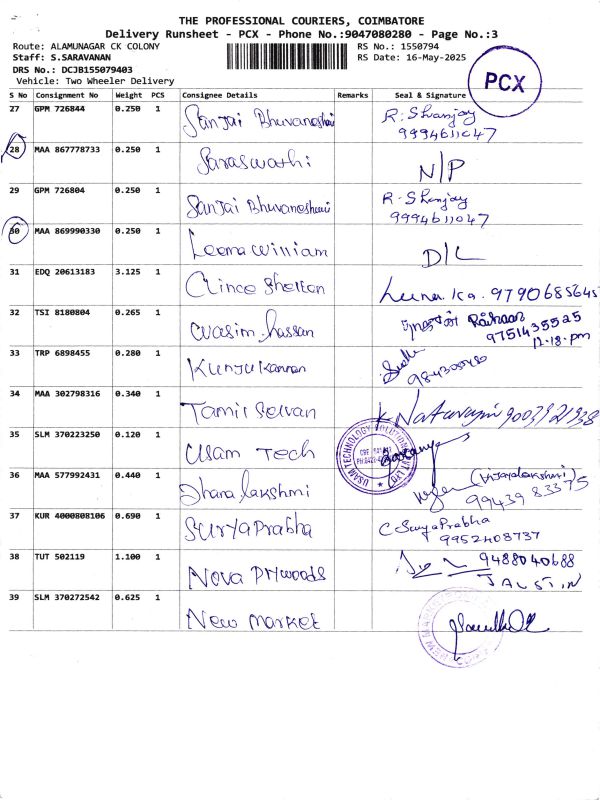 THE PROFESSIONAL COURIERS, COIMBATORE
Delivery Runsheet - PCX - Phone No.:9047080280 - Page No.:3
Route: ALAMUNAGAR CK COLONY
RS No.: 1550794
Staff: S.SARAVANAN
RS Date: 16-May-2025
DRS No.: DCJB155079403
Vehicle: Two Wheeler Delivery
PCX
S No Consignment No Weight PCS Consignee Details Remarks Seal & Signature
27 GPM 726844 0.250 1 Sanjai Bhuvaneshwari R. Shanjay
9994611047
28 MAA 867778733 0.250 1 Saraswathi N/P
29 GPM 726804 0.250 1 Sanjai Bhuvaneshwari R. Shanjay
9994611047
30 MAA 869990330 0.250 1 Leema William D/L
31 EDQ 20613183 3.125 1 Clince Shelton 9790685645
32 TSI 8180804 0.265 1 Wasim Hassan
9751435525
12.18. pm
33 TRP 6898455 0.280 1 Kunju Kannan
34 MAA 302798316 0.340 1 Tamil Selvan Natarajan
35 SLM 370223250 0.120 1 Usam Tech
USAM TECHNOLOGY SOLUTIONS PVT LTD
36 MAA 577992431 0.440 1 Dhana lakshmi (Vijayalakshmi)
99439 83375
37 KUR 4000808106 0.690 1 Surya Prabha C Surya Prabha
9952408737
38 TUT 502119 1.100 1 Nova Plywoods 9488040688
J AUSTIN
39 SLM 370272542 0.625 1 New Market